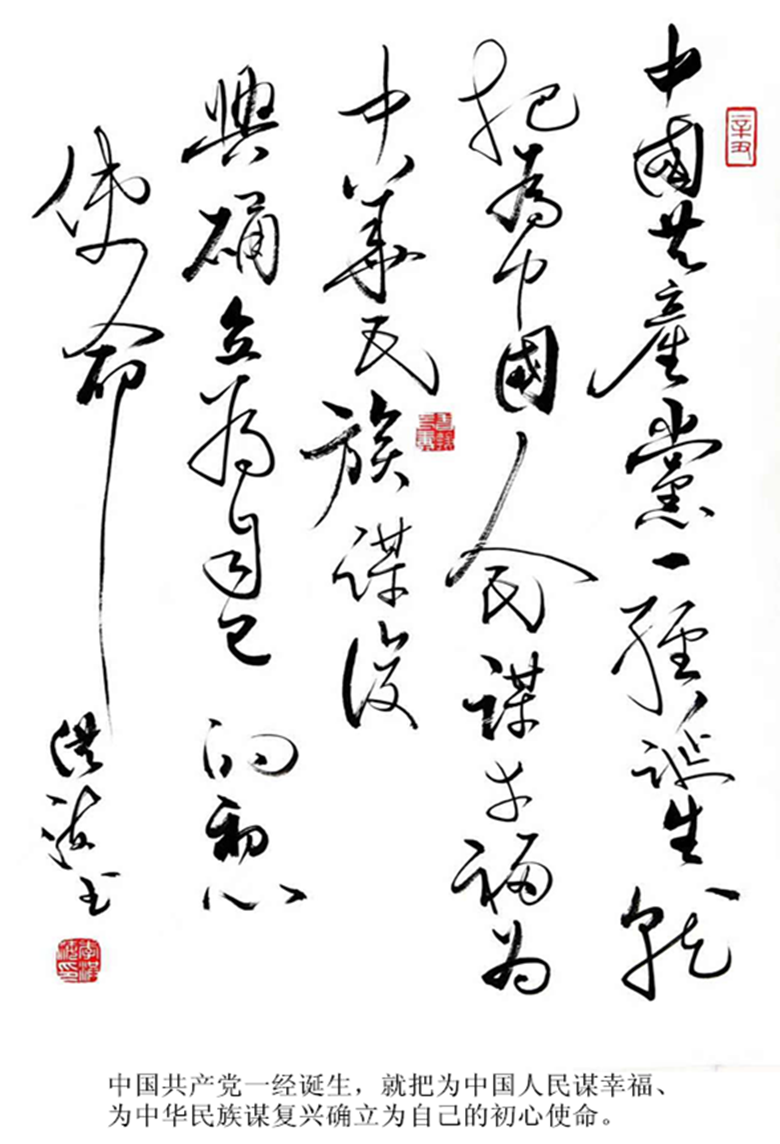 中國共產黨一經誕生就
把為中國人民谋幸福为
中華民族谋復
興確立為自己的初心
使命
洪波书
辛丑
中国共产党一经诞生，就把为中国人民谋幸福、
为中华民族谋复兴确立为自己的初心使命。